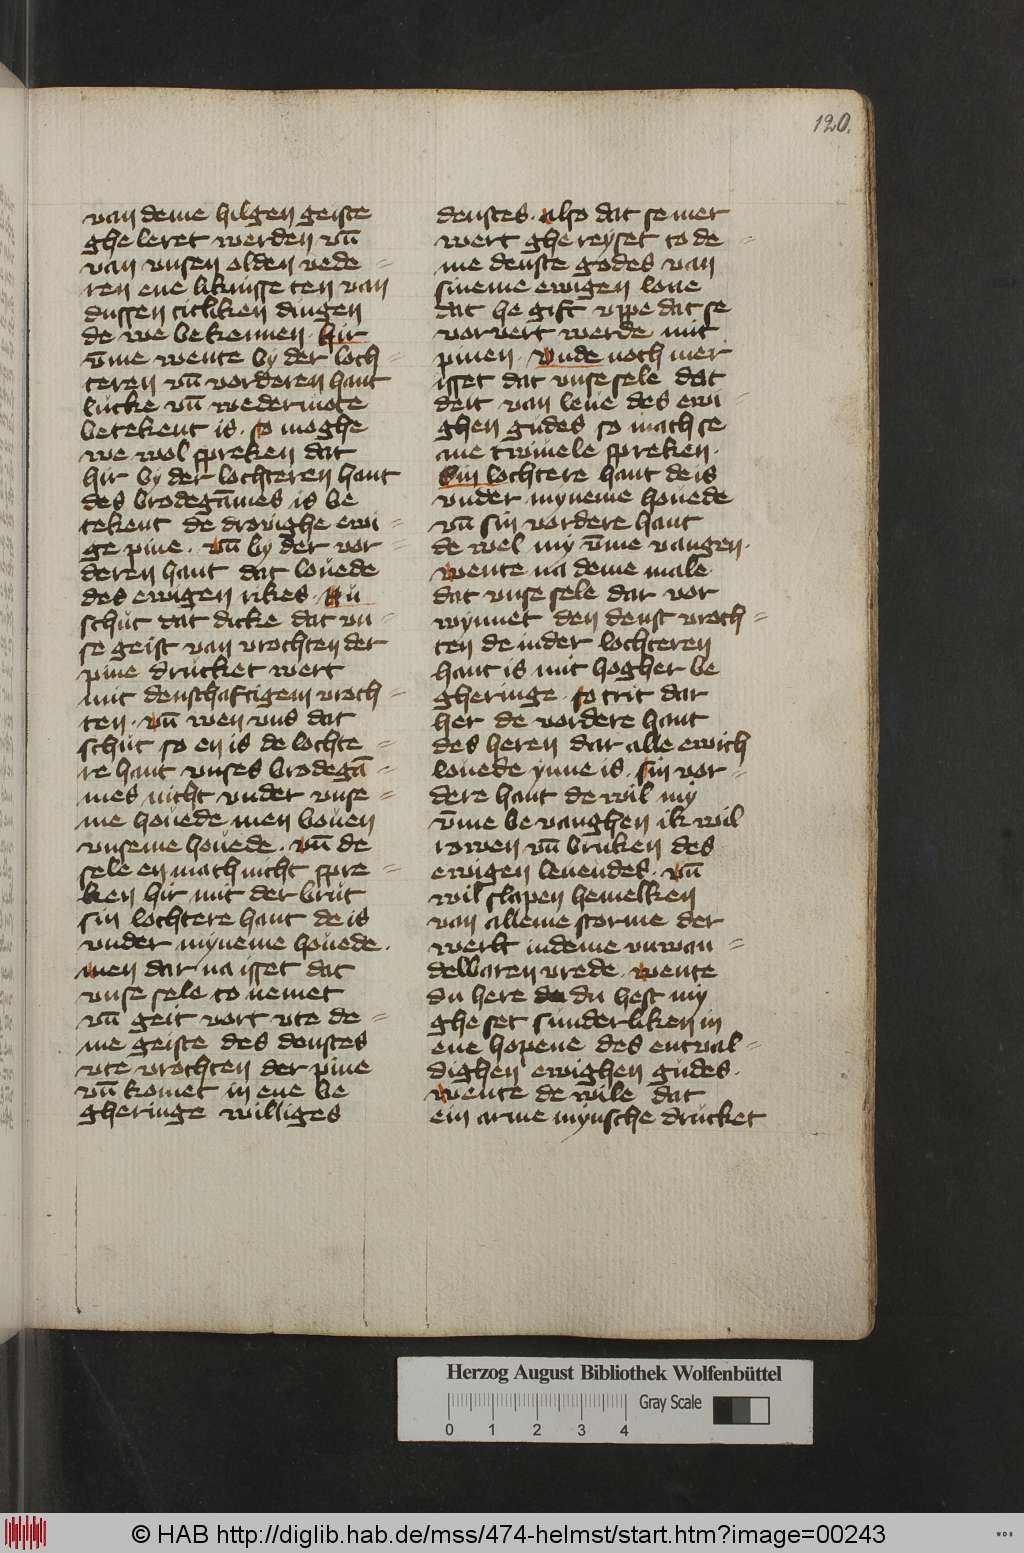 120.
van deme hilgen geiste
ghe leret werden vn̄
van vnsen olden vede =
ren ene liknisse ten van
dussen citliken dingen
de we bekennen. hir
v̄me wente by der loch =
teren vn̄ vorderen hant
lucke vn̄ wedermote
betekent is. so moghe
we wol spreken dat
hir by der lochteren hant
des brodegāmes is be
tekent de drovighe ewi =
ge pine. vn̄ by der vor =
deren hant dat lovede
des ewigen rikes. Nu
schut dat dicke dat vn =
se geist van vrochten der
pine drucket wert
mit denschaftigem vroch =
ten. vn̄ wen vns dat
schut so en is de lochte =
re hant vnses brodegā =
mes nicht vnder vnse =
me hovede men boven
vnseme hovede. vn̄ de
sele en mach nicht spre =
ken hir mit der brut
sin lochtere hant de is
vnder myneme hovede.
men dar na isset dat
vnse sele to nemet
vn̄ geit vort vte de =
me geiste des denstes
vte vrochten der pine
vn̄ komet in ene be
gheringe williges
denstes. also dat se mer
wert ghe reyset to de =
me denste godes van
sineme ewigen love
dat he gift vppe dat se
vorvert werde mit
pinen. vnde noch mer
isset dat vnse sele dat
deit van leve des ewi =
ghen gudes so mach se
ane twivele spreken.
Sin lochtere hant de is
vnder myneme hovede
vn̄ sin vordere hant
de wel my v̄me vangen.
wente na deme male
dat vnse sele dar vor
wynnet den denst vroch =
ten de in der lochteren
hant is mit hogher be
gheringe. so trit dar
her de vordere hant
des heren dar alle ewich
lovede ynne is. sin vor =
dere hant de wil my
v̄me be vanghen ik wil
rowen vn̄ bruken des
ewigen levendes. vn̄
wil slapen hemelken
van alleme storme der
werlt in deme vnwan =
delbaren vrede. wente
du here du hest my
ghe set sunderliken in
ene hopene des entval =
dighen ewighen gudes.
wente de wile dat
ein arme mynsche drucket
Herzog August Bibliothek Wolfenbüttel
Gray Scale
0 1 2 3 4
© HAB http://diglib.hab.de/mss/474-helmst/start.htm?image=00243